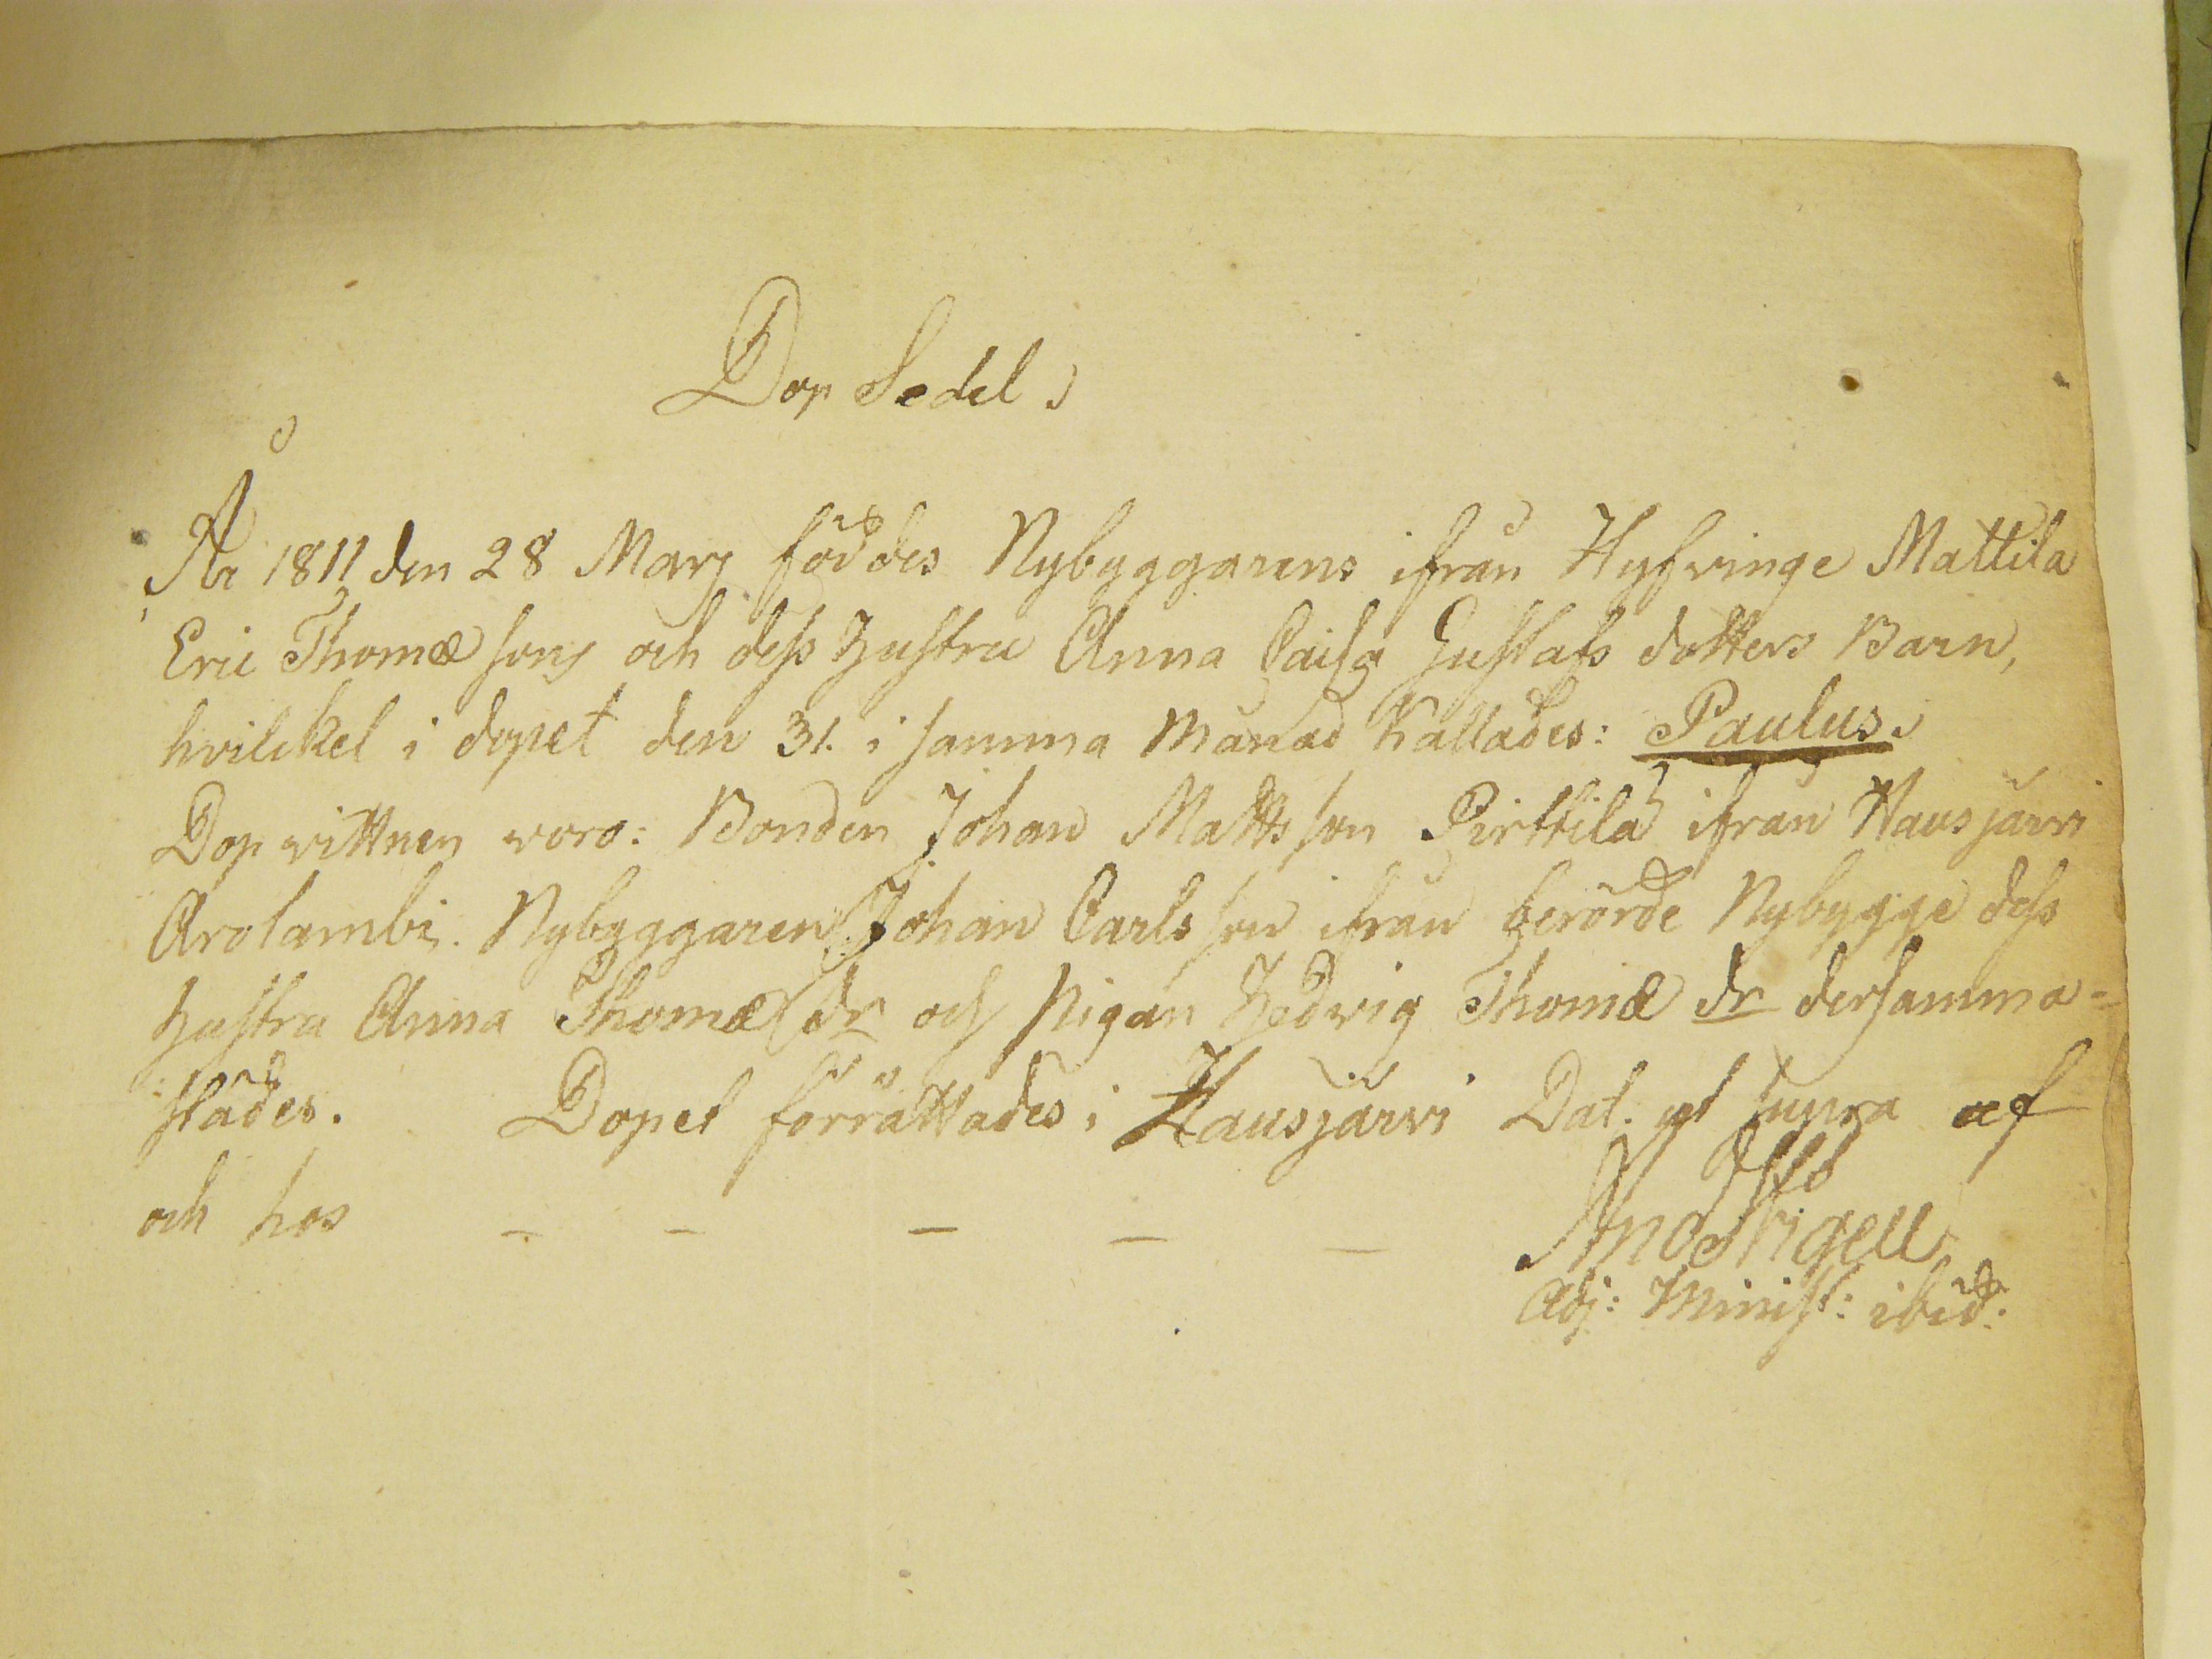 Dop Sedel.
År 1811 den 28 Marz föddes Nybyggarens ifrån Hyfvinge Mattila
Eric Thomæ sons och dess Hustru Anna Caisa Gustafs dotters Barn,
hvilckel i dopet den 31. i samma Månad Kallades: Paulus.
Dop vittnen voro: Bonden Johan Matts son Pirttilä ifrån Hausjärvi
Arolambi. Nybyggaren Johan Carls son ifrån berörde Nybygge dess
Hustru Anna Thomæ dr och Pigan Hedvig Thomæ dr dersamma-
städes. Dopet förrättades i Hausjärvi Dat. ut supra af
och hos – – – – –
Adj: Minist: ibid: